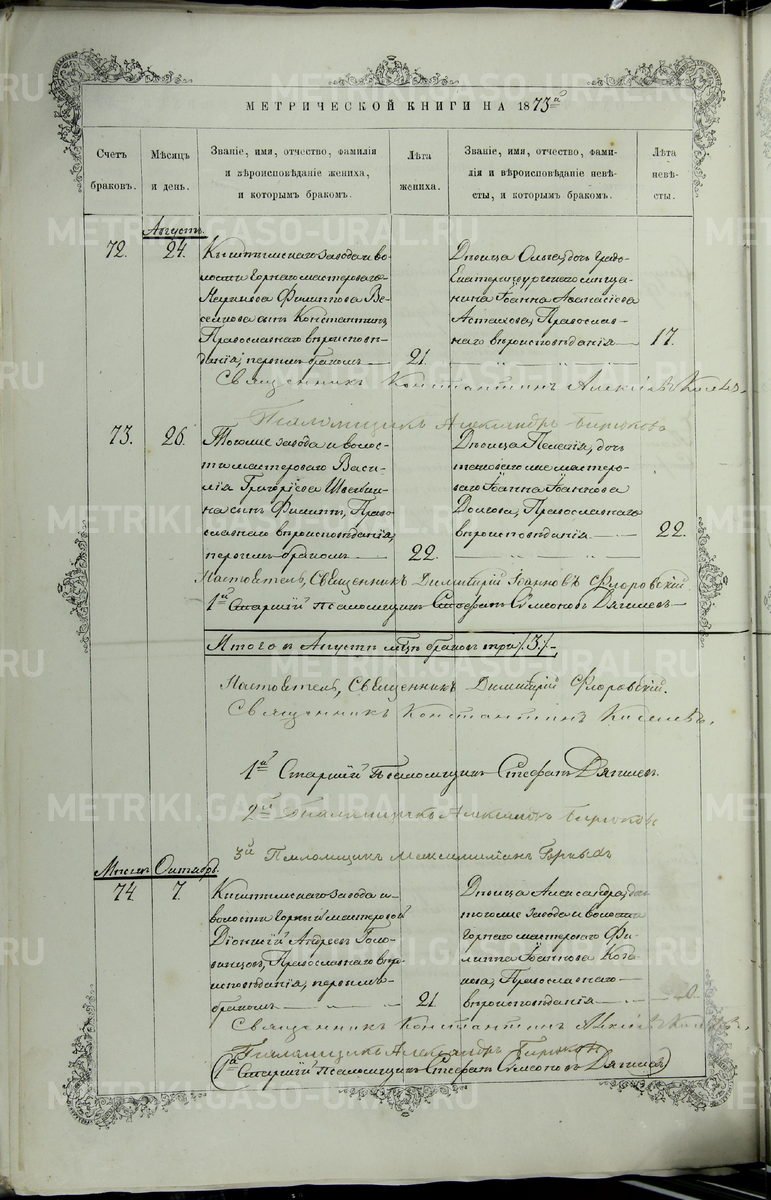 МЕТРИЧЕСКОЙ КНИГИ НА 1873й
Счетъ браковъ.
Мѣсяцъ и день.
Званіе, имя, отчество, фамилія
и вѣроисповѣданіе жениха,
и которымъ бракомъ.
Лѣта жениха.
Званіе, имя, отчество, фами-
лія и вѣроисповѣданіе невѣ-
сты, и которымъ бракомъ.
Лѣта невѣ-
сты.
Августъ.
72.
24.
Кыштымскаго завода и во
лости Горнаго мастероваго
Филиппова Ве-
селкова сынъ Константинъ,
Православнаго вѣроисповѣ-
данія, первымъ бракомъ
21.
Дѣвица Ольга, дочь Градо-
Екатеринбургскаго мѣща-
нина Іоанна Аѳанасіева
Астахова, Православ-
наго вѣроисповѣданія
17.
Священникъ Константинъ Алексіевъ Киселевъ.
Псаломщикъ Александръ Бирюковъ
73.
26.
Тогоже завода и волос-
ти мастероваго Васи-
лія Григоріева
на сынъ Филиппъ, Право-
славнаго вѣроисповѣданія,
первымъ бракомъ
22.
Дѣвица Пелагія, дочь
таковаго же мастеро-
ваго Іоанна Іоаннова
Православнаго
вѣроисповѣданія
22.
Настоятель, Священникъ Димитрій Іоанновъ Флоровскій.
1й Старшій Псаломщикъ Стефанъ Сѵмеоновъ Дягилевъ
Итого въ Августѣ мцѣ браковъ три /.3./.
Настоятель, Священникъ Димитрій Флоровскій.
Священникъ Константинъ Киселевъ.
1й Старшій Псаломщикъ Стефанъ Дягилевъ.
2й Псаломщикъ Александръ Бирюковъ
3й Псаломщикъ Максимиліанъ
Мѣсяцъ Октябрь.
74.
7.
Кыштымскаго завода и
волости Горный мастеровой
Діонисій Андреевъ Голо-
винцовъ, Православнаго вѣро
исповѣданія, первымъ
бракомъ
21.
Дѣвица Александра, дочь
тогоже завода и волости
Горнаго мастероваго Фи-
липпа Іоаннова
Православнаго
вѣроисповѣданія
Священникъ Константинъ Алексіевъ Киселевъ.
Псаломщикъ Александръ Бирюковъ
1й Старшій Псаломщикъ Стефанъ Сѵмеоновъ Дягилевъ
METRIKI.GASO-URAL.RU